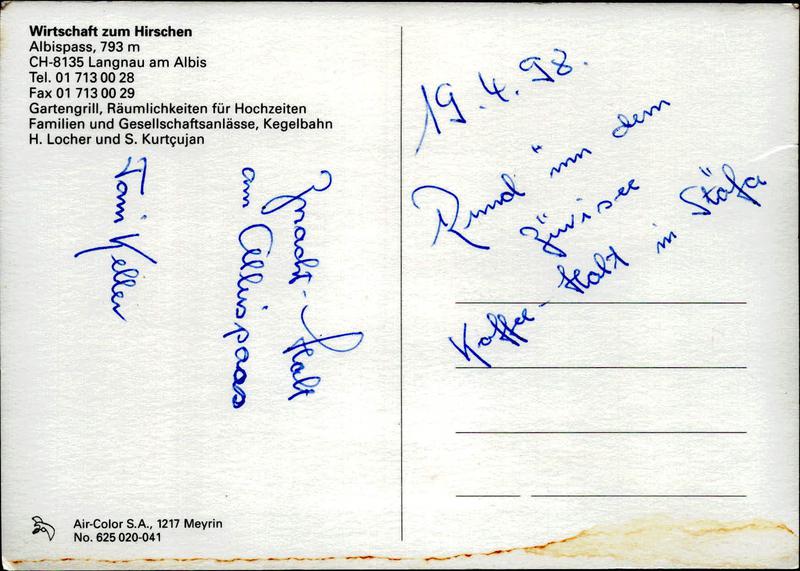 Wirtschaft zum Hirschen
Albispass, 793 m
CH-8135 Langnau am Albis
Tel. 01 713 00 28
Fax 01 713 00 29
Gartengrill, Räumlichkeiten für Hochzeiten
Familien und Gesellschaftsanlässe, Kegelbahn
H. Locher und S. Kurtçujan
Znacht-Halt
am Albispass
Toni Keller
19.4.98.
Rund um dem
Zürisee
Kaffee-Halt in Stäfa
Air-Color S.A., 1217 Meyrin
No. 625 020-041